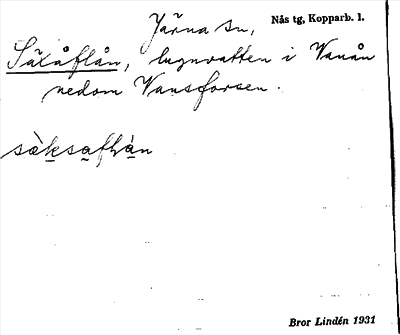 Järna sn,
Nås tg, Kopparb. l.
Säxåflån, lugnvatten i Vanån
nedom Vansforsen.
sàksaflàn
Bror Lindén 1931